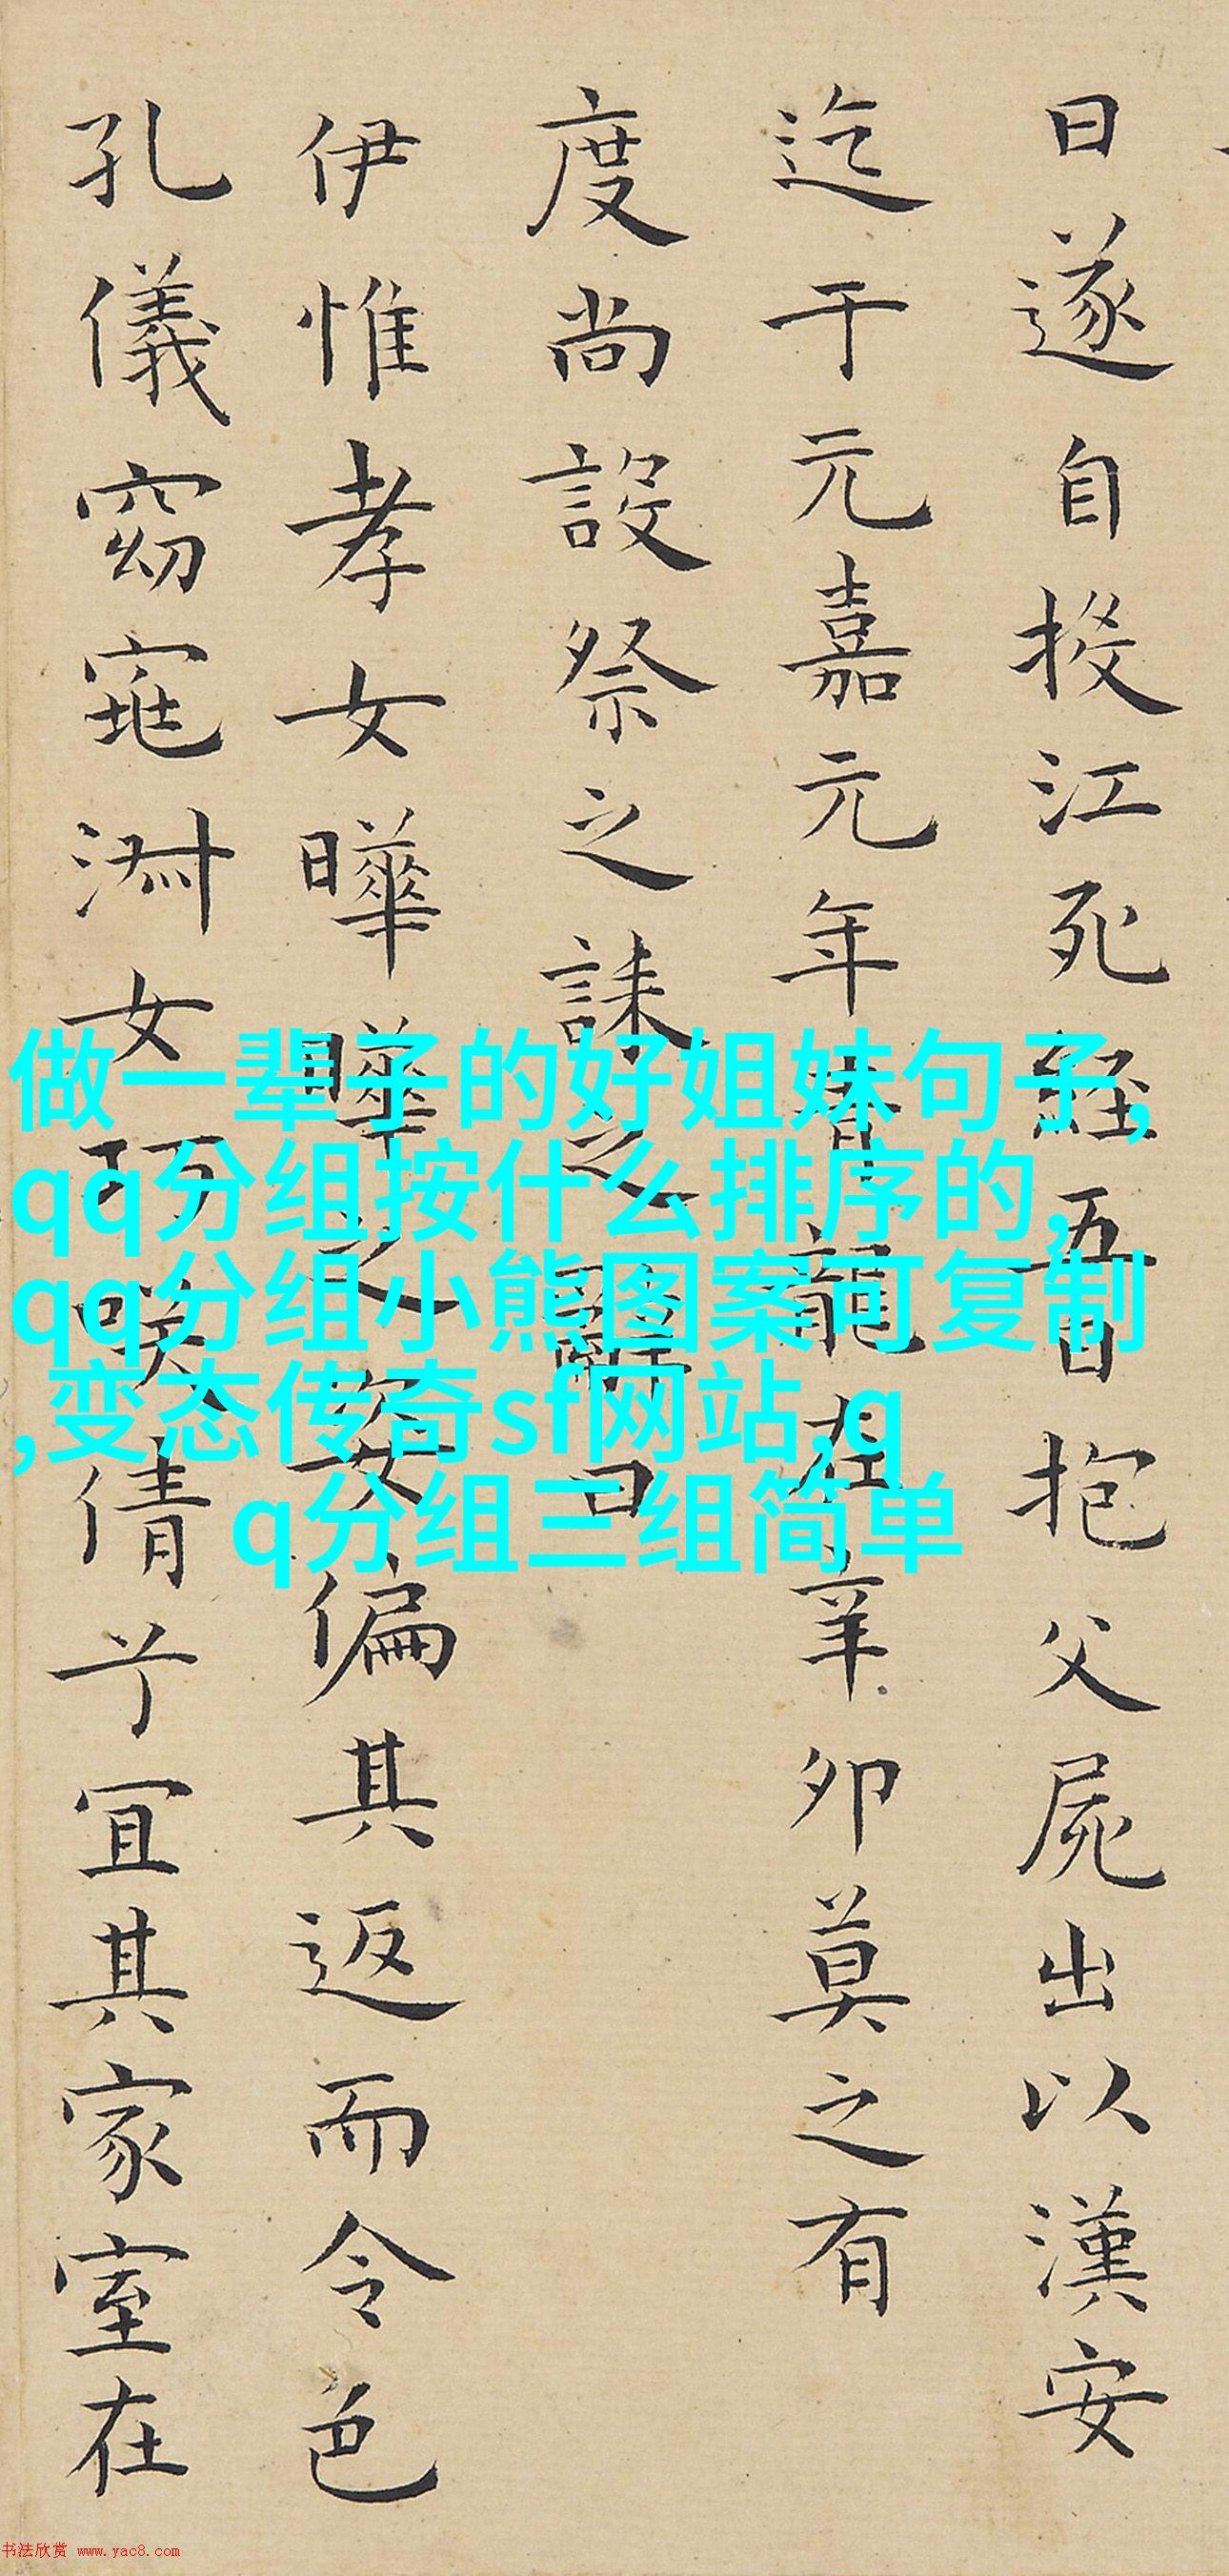 日遂自投江死經五日抱父屍出以漢安
迄于元嘉元年青龍在辛卯莫之有
度尚設祭之誄之辭曰
伊惟孝女曄曄之姿偏其返而令色
孔儀窈窕淑女巧咲倩兮宜其家室在
做一辈子的好姐妹句子,
qq分组按什么排序的,
qq分组小熊图案可复制
,变态传奇sf网站,q
q分组三组简单
书法欣赏 www.yac8.com